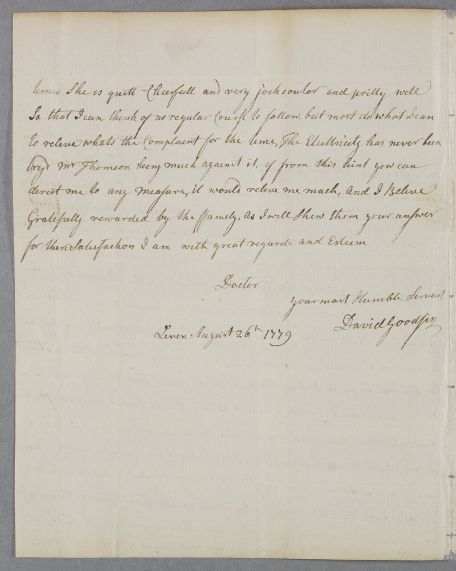 times She is quitt Cheerfull and very jockoulor and pritty well
So that I can think of no regular Course to follow, but most do what I can
to releive whats the Complaint for the time, The Electricity has never been
try'd Mr Thomson being much against it, if from this hint you can
derect me to any measure, it would releive me much, and I Beleive
Gratefully rewarded by the ffamely, as I will Shew them your answer
for their Satisfaction I am with great regarde and Esteem
Doctor
your most Humble Servant
Leven August 26th 1779
David Goodsir